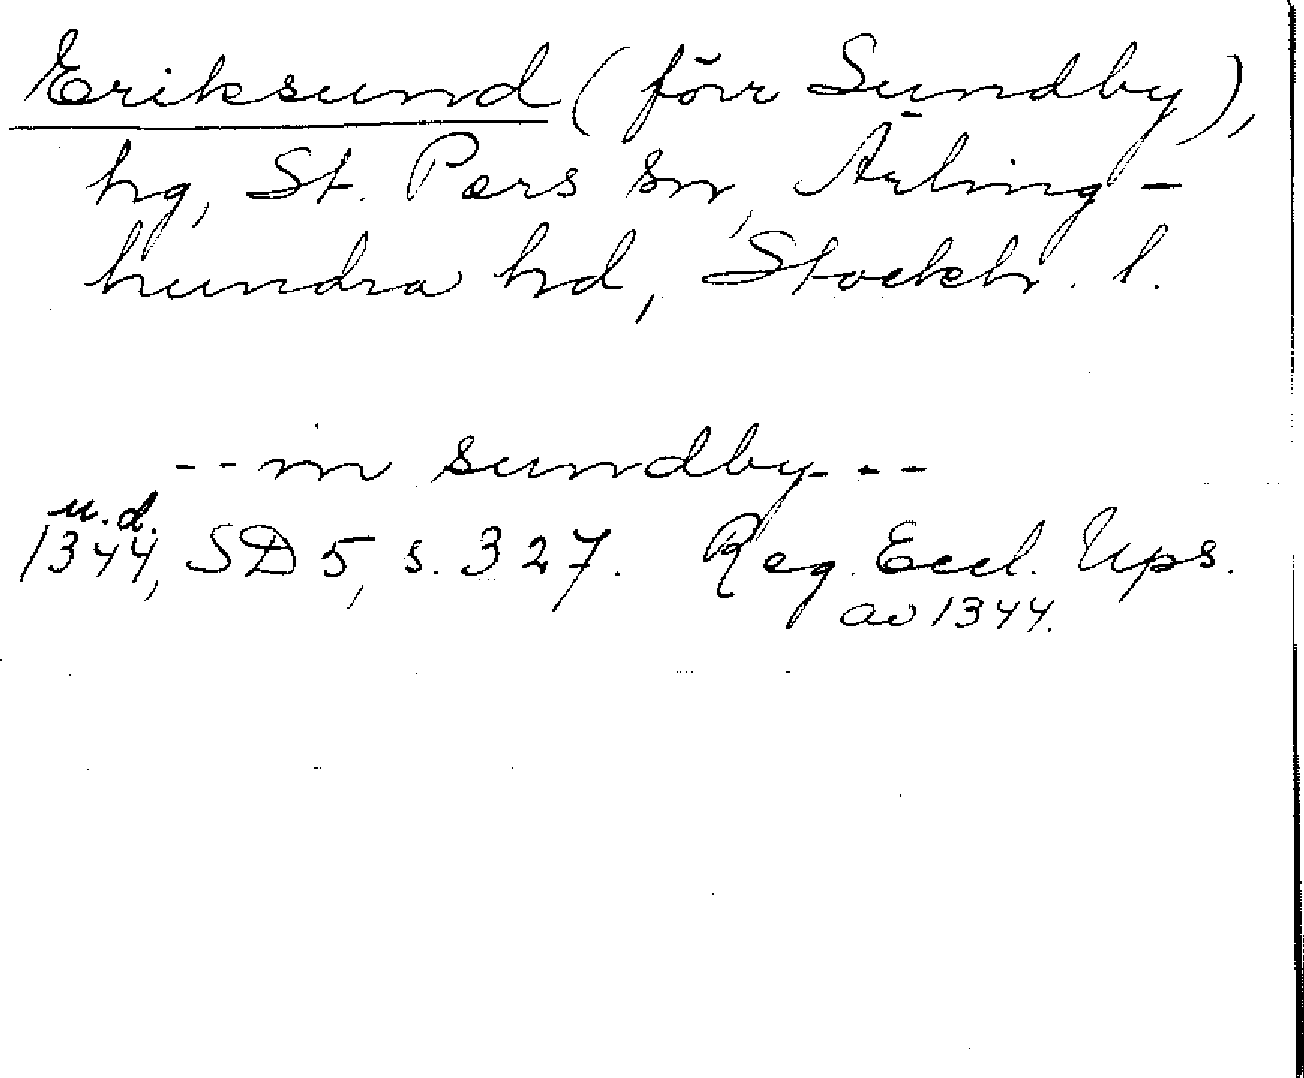 Eriksund (förr Sundby),
hg, St. Pers sn, Ärling-
hundra hd, Stockh. l.
--in sundby---
u.d.
1344, SD 5, s. 327. Reg. Eccl. Ups.
av 1344.